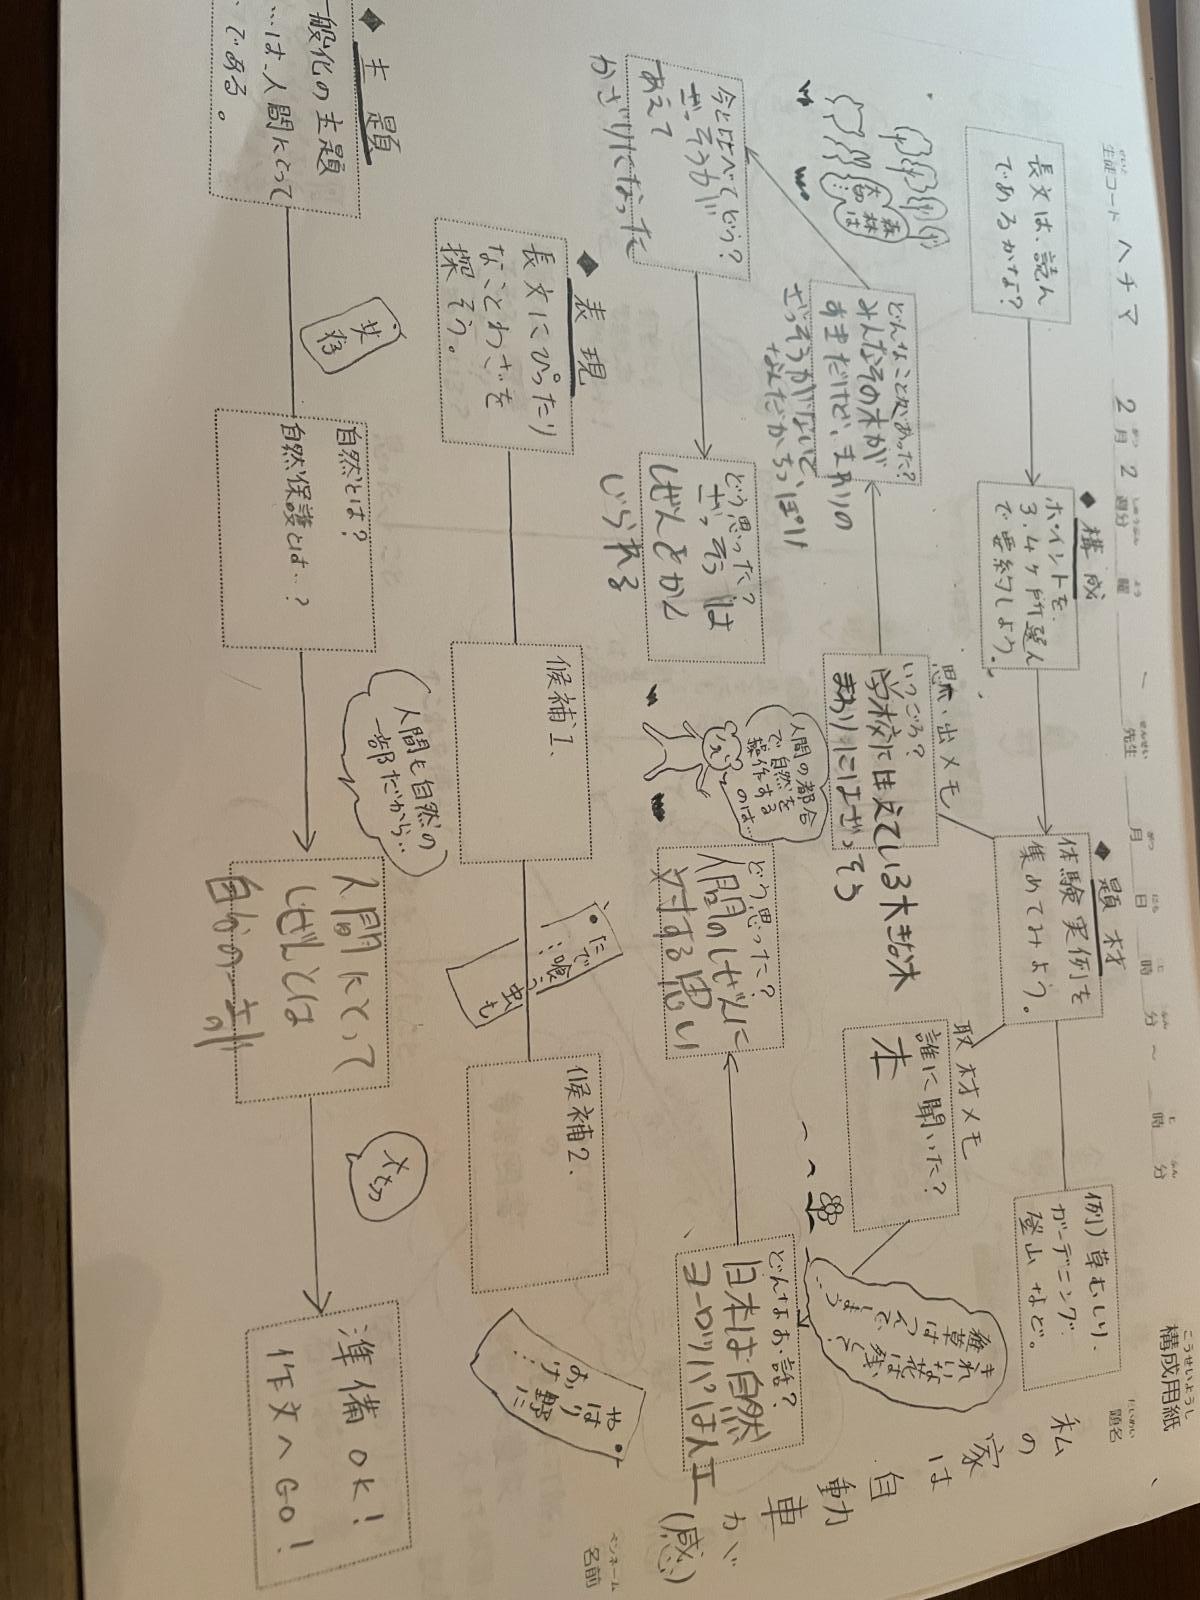 構成用紙
こうせいようし
題名
だいめい
私の家は自動車が(感)
ペンネーム
名前
生徒コード ヘチマ 2月2週分 曜 先生 月 日 時 分 ~ 時 分
長文は、読ん
であるかな?
◆構成
ポイントを、
3、4ヶ所選ん
で要約しよう。
◆題材
体験実例を
集めてみよう。
例)草むしり、
ガーデニング
登山など。
思い出メモ
いつごろ?
学校に生えている大きな木
まわりにはざっそう
どんなことがあった?
みんなその木が
すきだけど、まわりの
ざっそうがないと、
なんだかちっぽけ
今と比べてどう?
ざっそうが
あえて
かざりになった
どう思った?
ざっそうは
しぜんとかん
じられる
森林
は
取材メモ
誰に聞いた?
本
きれいな花は残して
雑草は
しまう…
どんなお話?
日本は自然
ヨーロッパは人工
どう思った?
人間のしぜんに
対する思い
人間の都合
で自然を
操作する
のは…
◆表現
長文にぴったり
なことわざを
探そう。
候補1.
たで
喰う
虫も
候補2.
やはり
野に
おけ
◆主題
一般化の主題
…は人間にとって
…である。
共存
自然とは?
自然保護とは…?
人間も自然の
一部だから…
人間にとって
しぜんとは
自分の一部
大切
準備OK!
作文へGO!